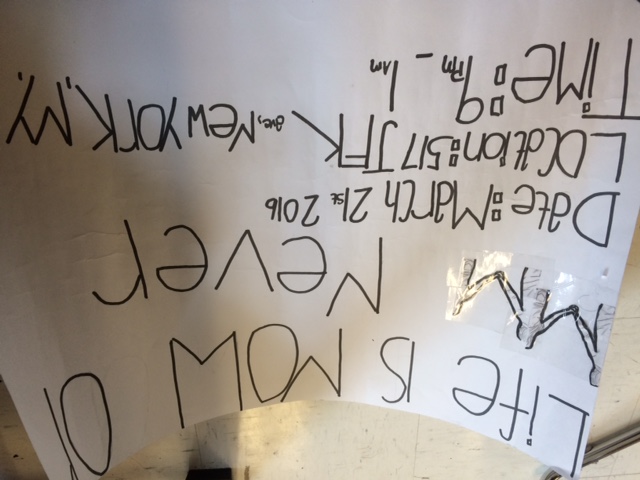 Life IS NOW Or
Never
Date: March 21st 2016
Location: 517 JFK Ave, New York, NY.
Time: 9Pm - 1am